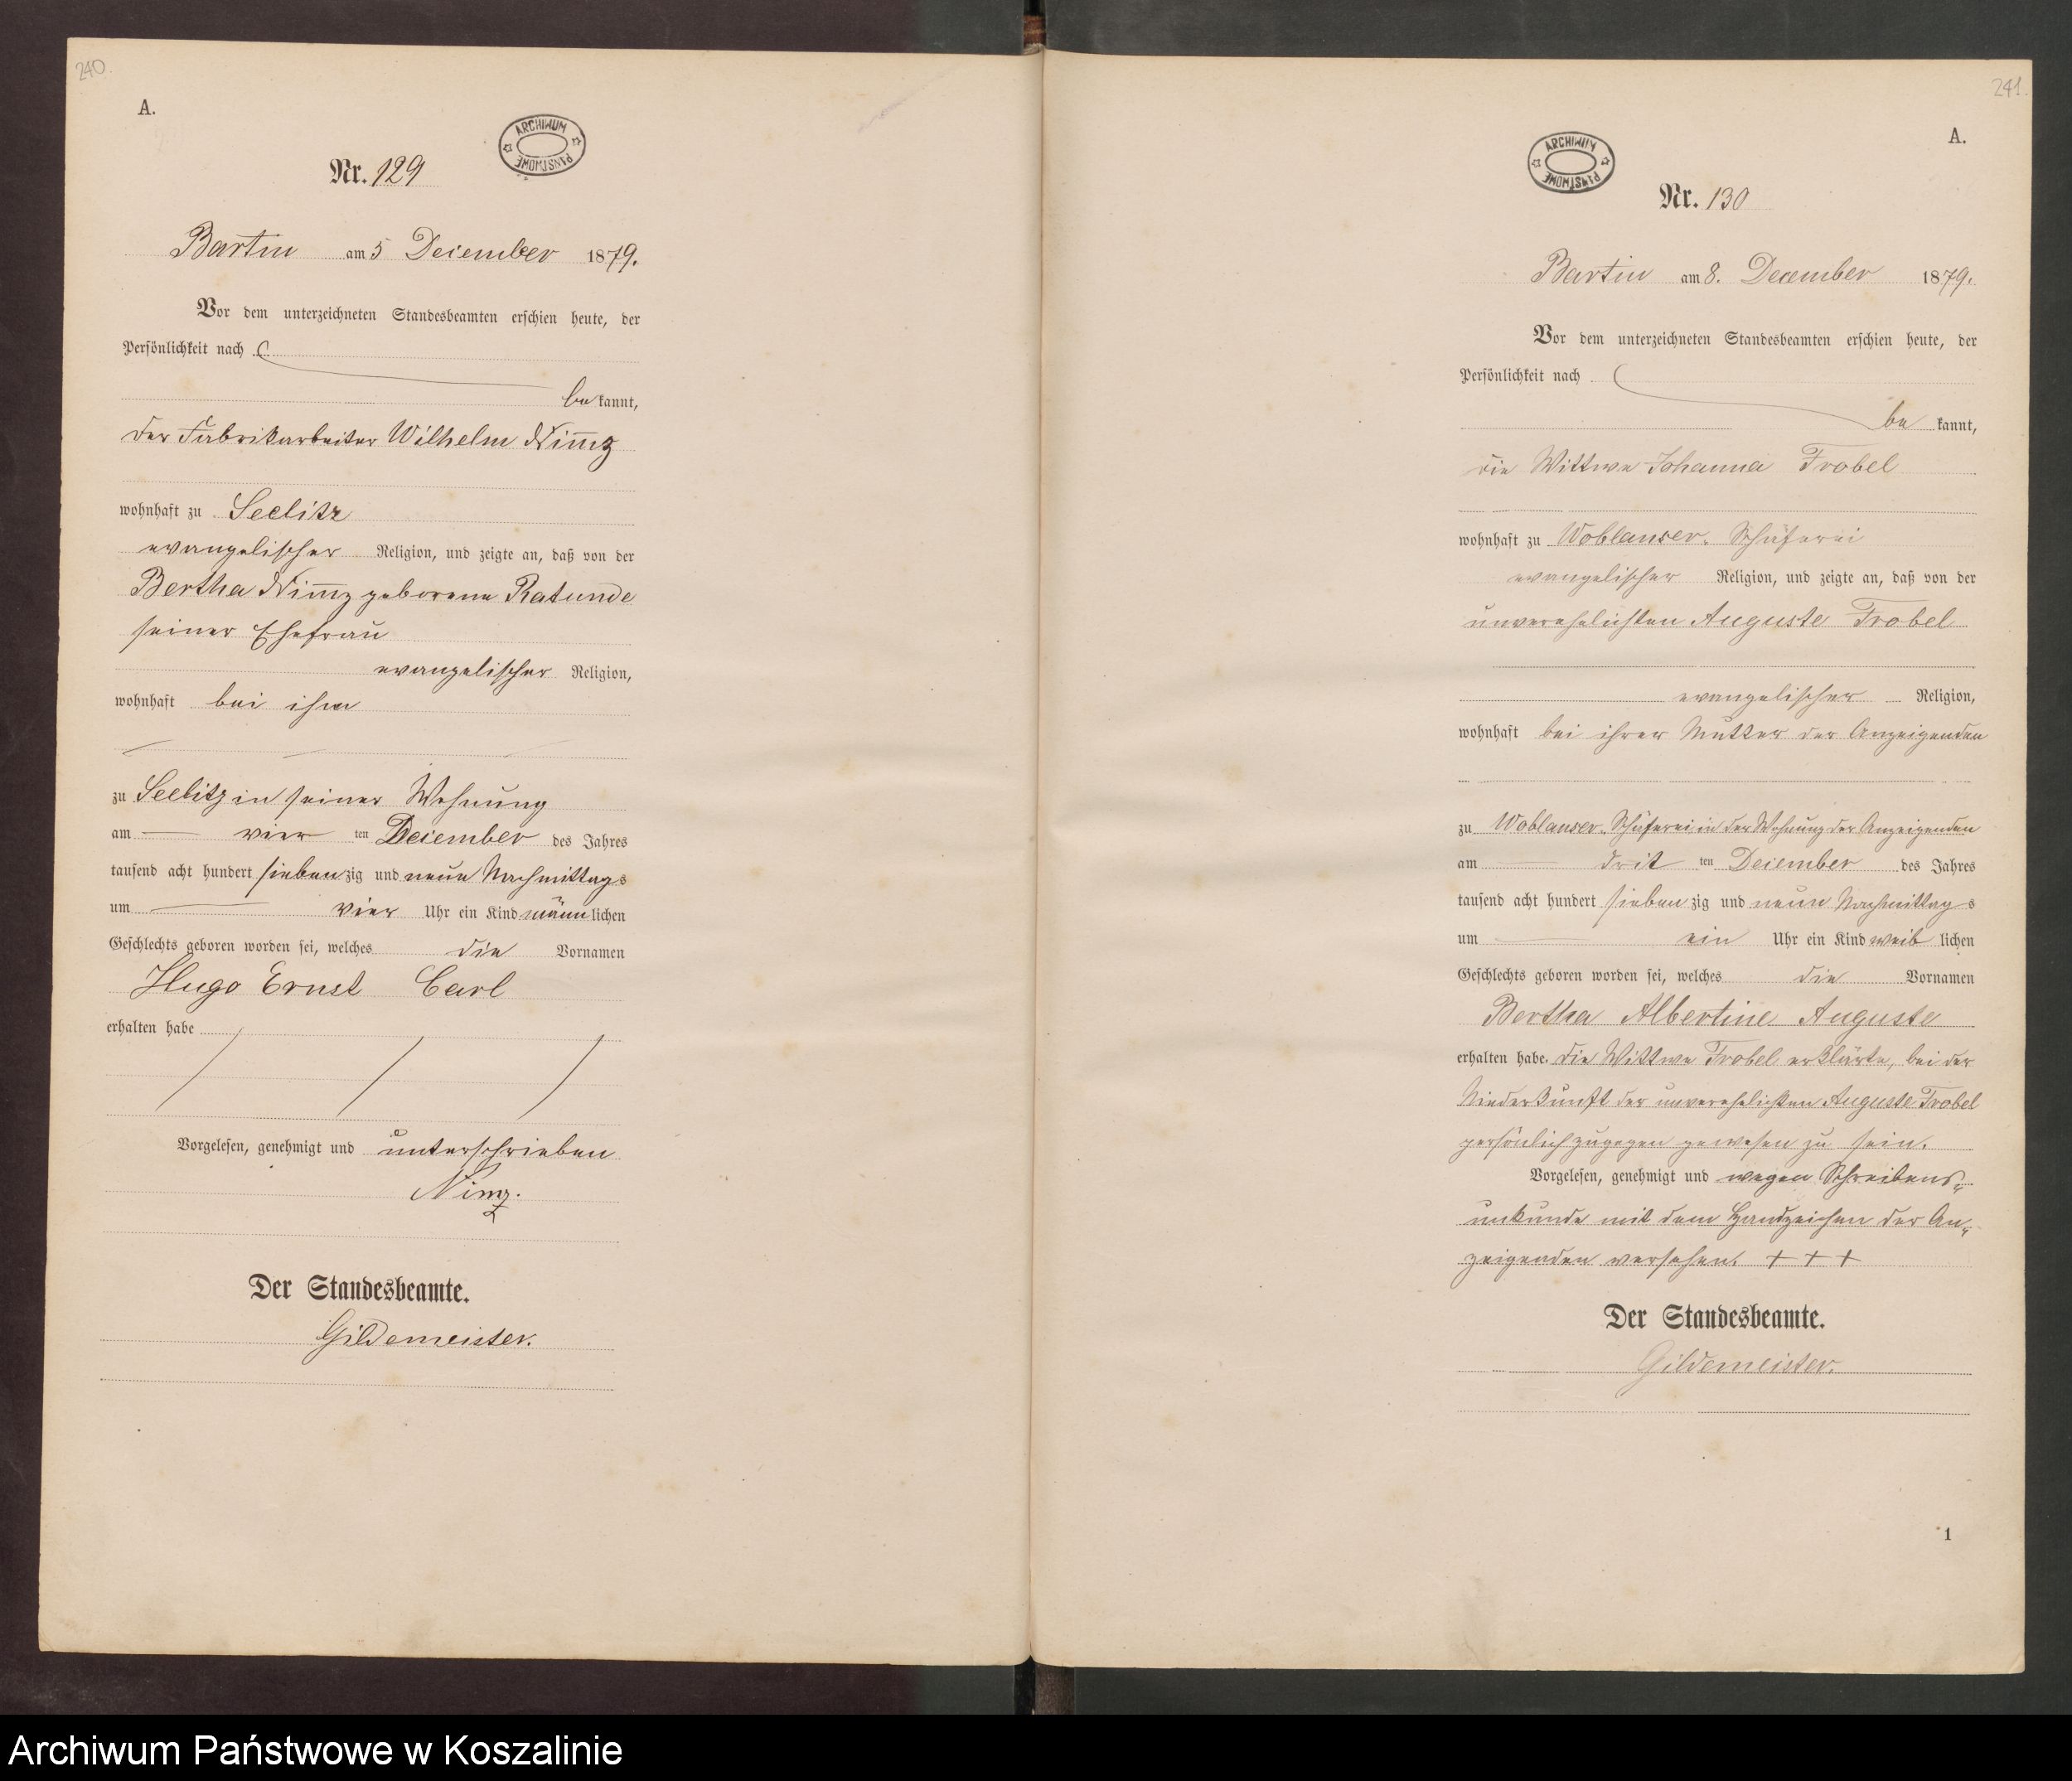 240.
A.
ARCHIWUM PAŃSTWOWE
Nr. 129
Bartin am 5 December 1879.
Vor dem unterzeichneten Standesbeamten erschien heute, der
Persönlichkeit nach
bekannt,
der Fabrikarbeiter Wilhelm Nim̅z
wohnhaft zu Seelitz
evangelischer Religion, und zeigte an, daß von der
Bertha Nim̅z geborene Ratunde
seiner Ehefrau
evangelischer Religion,
wohnhaft bei ihm
zu Seelitz in seiner Wohnung
am vier ten December des Jahres
tausend acht hundert siebenzig und neun Nachmittags
um vier Uhr ein Kind männlichen
Geschlechts geboren worden sei, welches die Vornamen
Hugo Ernst Carl
erhalten habe
Vorgelesen, genehmigt und unterschrieben
Nimz.
Der Standesbeamte.
Gildemeister.
241.
A.
ARCHIWUM PAŃSTWOWE
Nr. 130
Bartin am 8. December 1879.
Vor dem unterzeichneten Standesbeamten erschien heute, der
Persönlichkeit nach
be kannt,
die Wittwe Johanna Trobel
wohnhaft zu Woblanser Schäferei
evangelischer Religion, und zeigte an, daß von der
unverehelichten Auguste Trobel
evangelischer Religion,
wohnhaft bei ihrer Mutter der Anzeigenden
zu Woblanser Schäferei in der Wohnung der Anzeigenden
am drit ten December des Jahres
tausend acht hundert siebenzig und neun Nachmittags
um ein Uhr ein Kind weib lichen
Geschlechts geboren worden sei, welches die Vornamen
Bertha Albertine Auguste
erhalten habe. Die Wittwe Trobel erklärte, bei der
Niederkunft der unverehelichten Auguste Trobel
persönlich zugegen gewesen zu sein.
Vorgelesen, genehmigt und wegen Schreibens-
unkunde mit dem Handzeichen der An-
zeigenden versehen. + + +
Der Standesbeamte.
Gildemeister.
1
Archiwum Państwowe w Koszalinie